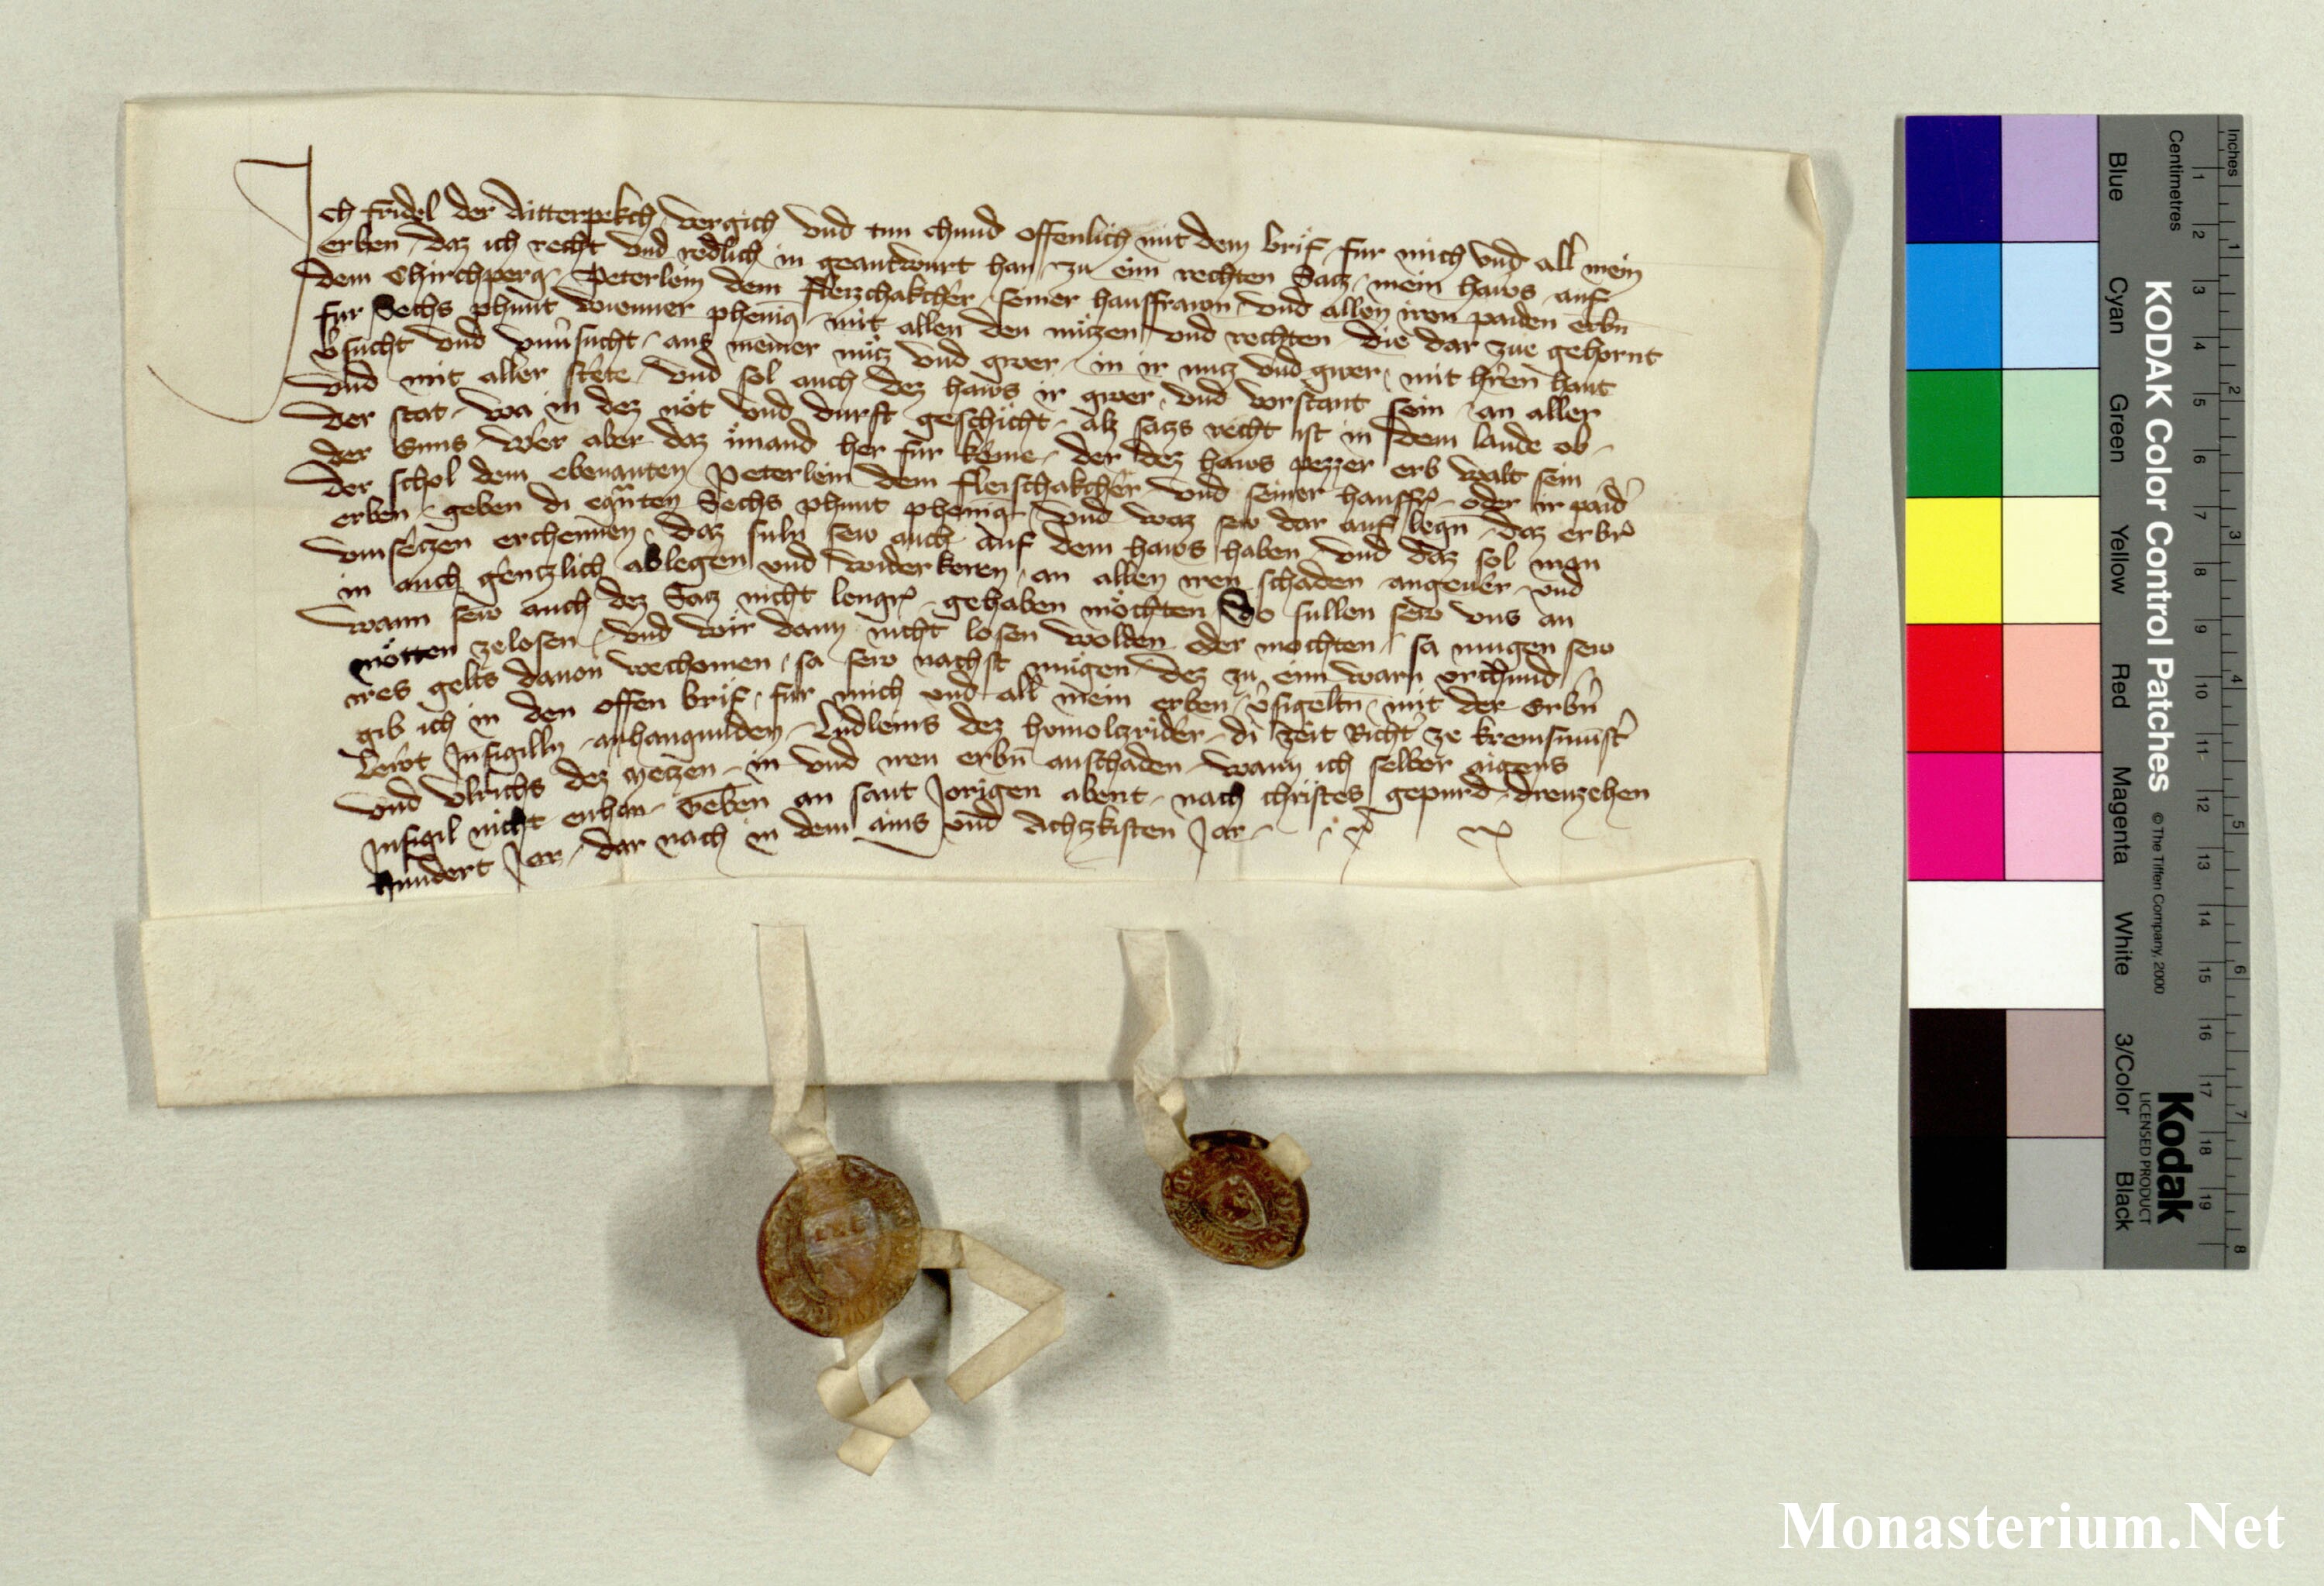 Ich fridel der Aitterpekch vergich vnd tun chund offenlich mit dem brif fur mich vnd all mein
erben daz ich recht vnd redlich in geantwurt han zu eim rechten Satz mein haws auf
dem Chirchperg Peterlein dem fleischakcher seiner hausfrawn vnd allen iren paiden erbn̄
fur Sechs phunt wienner phenīg mit allen den nützen vnd rechten die dar zue gehornt
v̓sucht vnd vnu̓sucht aus meiner nütz vnd gwer in ir nutz vnd gwer mit hren hant
vnd mit aller stete vnd sol auch dez haws ir gwer vnd vorstant sein an aller
der stat wa in dez nöt vnd durft geschicht alz satzs recht ist in dem lande ob
der Enns wer aber daz imand her fur keme der dez haws pezzer erb walt sein
der schol dem ebenanten Peterlein dem fleischakcher vnd seiner hausfr̄ oder ir paid̓
erben geben di egn̄ten Sechs phunt phenīg vnd waz sew dar auf legn̄ daz erbr̓
vmsetzen erchennen daz suln sew auch auf dem haws haben vnd daz sol man
in auch gentzlich ablegen vnd widerkeren an allen iren schaden angeuer vnd
wann sew auch dez Satz nicht lengr̓ gehaben möchten So sullen sew vns an
nötten zelosen vnd wir dann nicht losen wolden oder mochten sa mugen sew
ires gelts dauon wechomen sa sew nachst mügen dez zu eim warn vrchund
gib ich in den offen brif fur mich vnd all mein erben v̓sigeltn̄ mit der Erbn̓
Lewt Insigilln anhangunden Ludleins dez homolczrider di zeit Richt̓ ze kremsmūst̓
vnd Vlrichs dez Metzen in vnd iren erbn̄ anschaden wann ich selber aigens
Insigil nicht enhan Geben an sant Jorigen abent nach christes gepurd dreuzehen
hundert Jar dar nach in dem ains vnd Achtzkisten Jar
KODAK Color Control Patches © The Tiffen Company, 2000
Kodak
LICENSED PRODUCT
Inches 1 2 3 4 5 6 7 8
Centimetres 1 2 3 4 5 6 7 8 9 10 11 12 13 14 15 16 17 18 19
Blue Cyan Green Yellow Red Magenta White 3/Color Black
Monasterium.Net